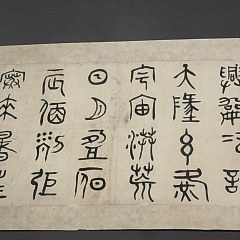 興嗣次韻
天地玄黃
宇宙洪荒
日月盈昃
辰宿列張
寒來暑往